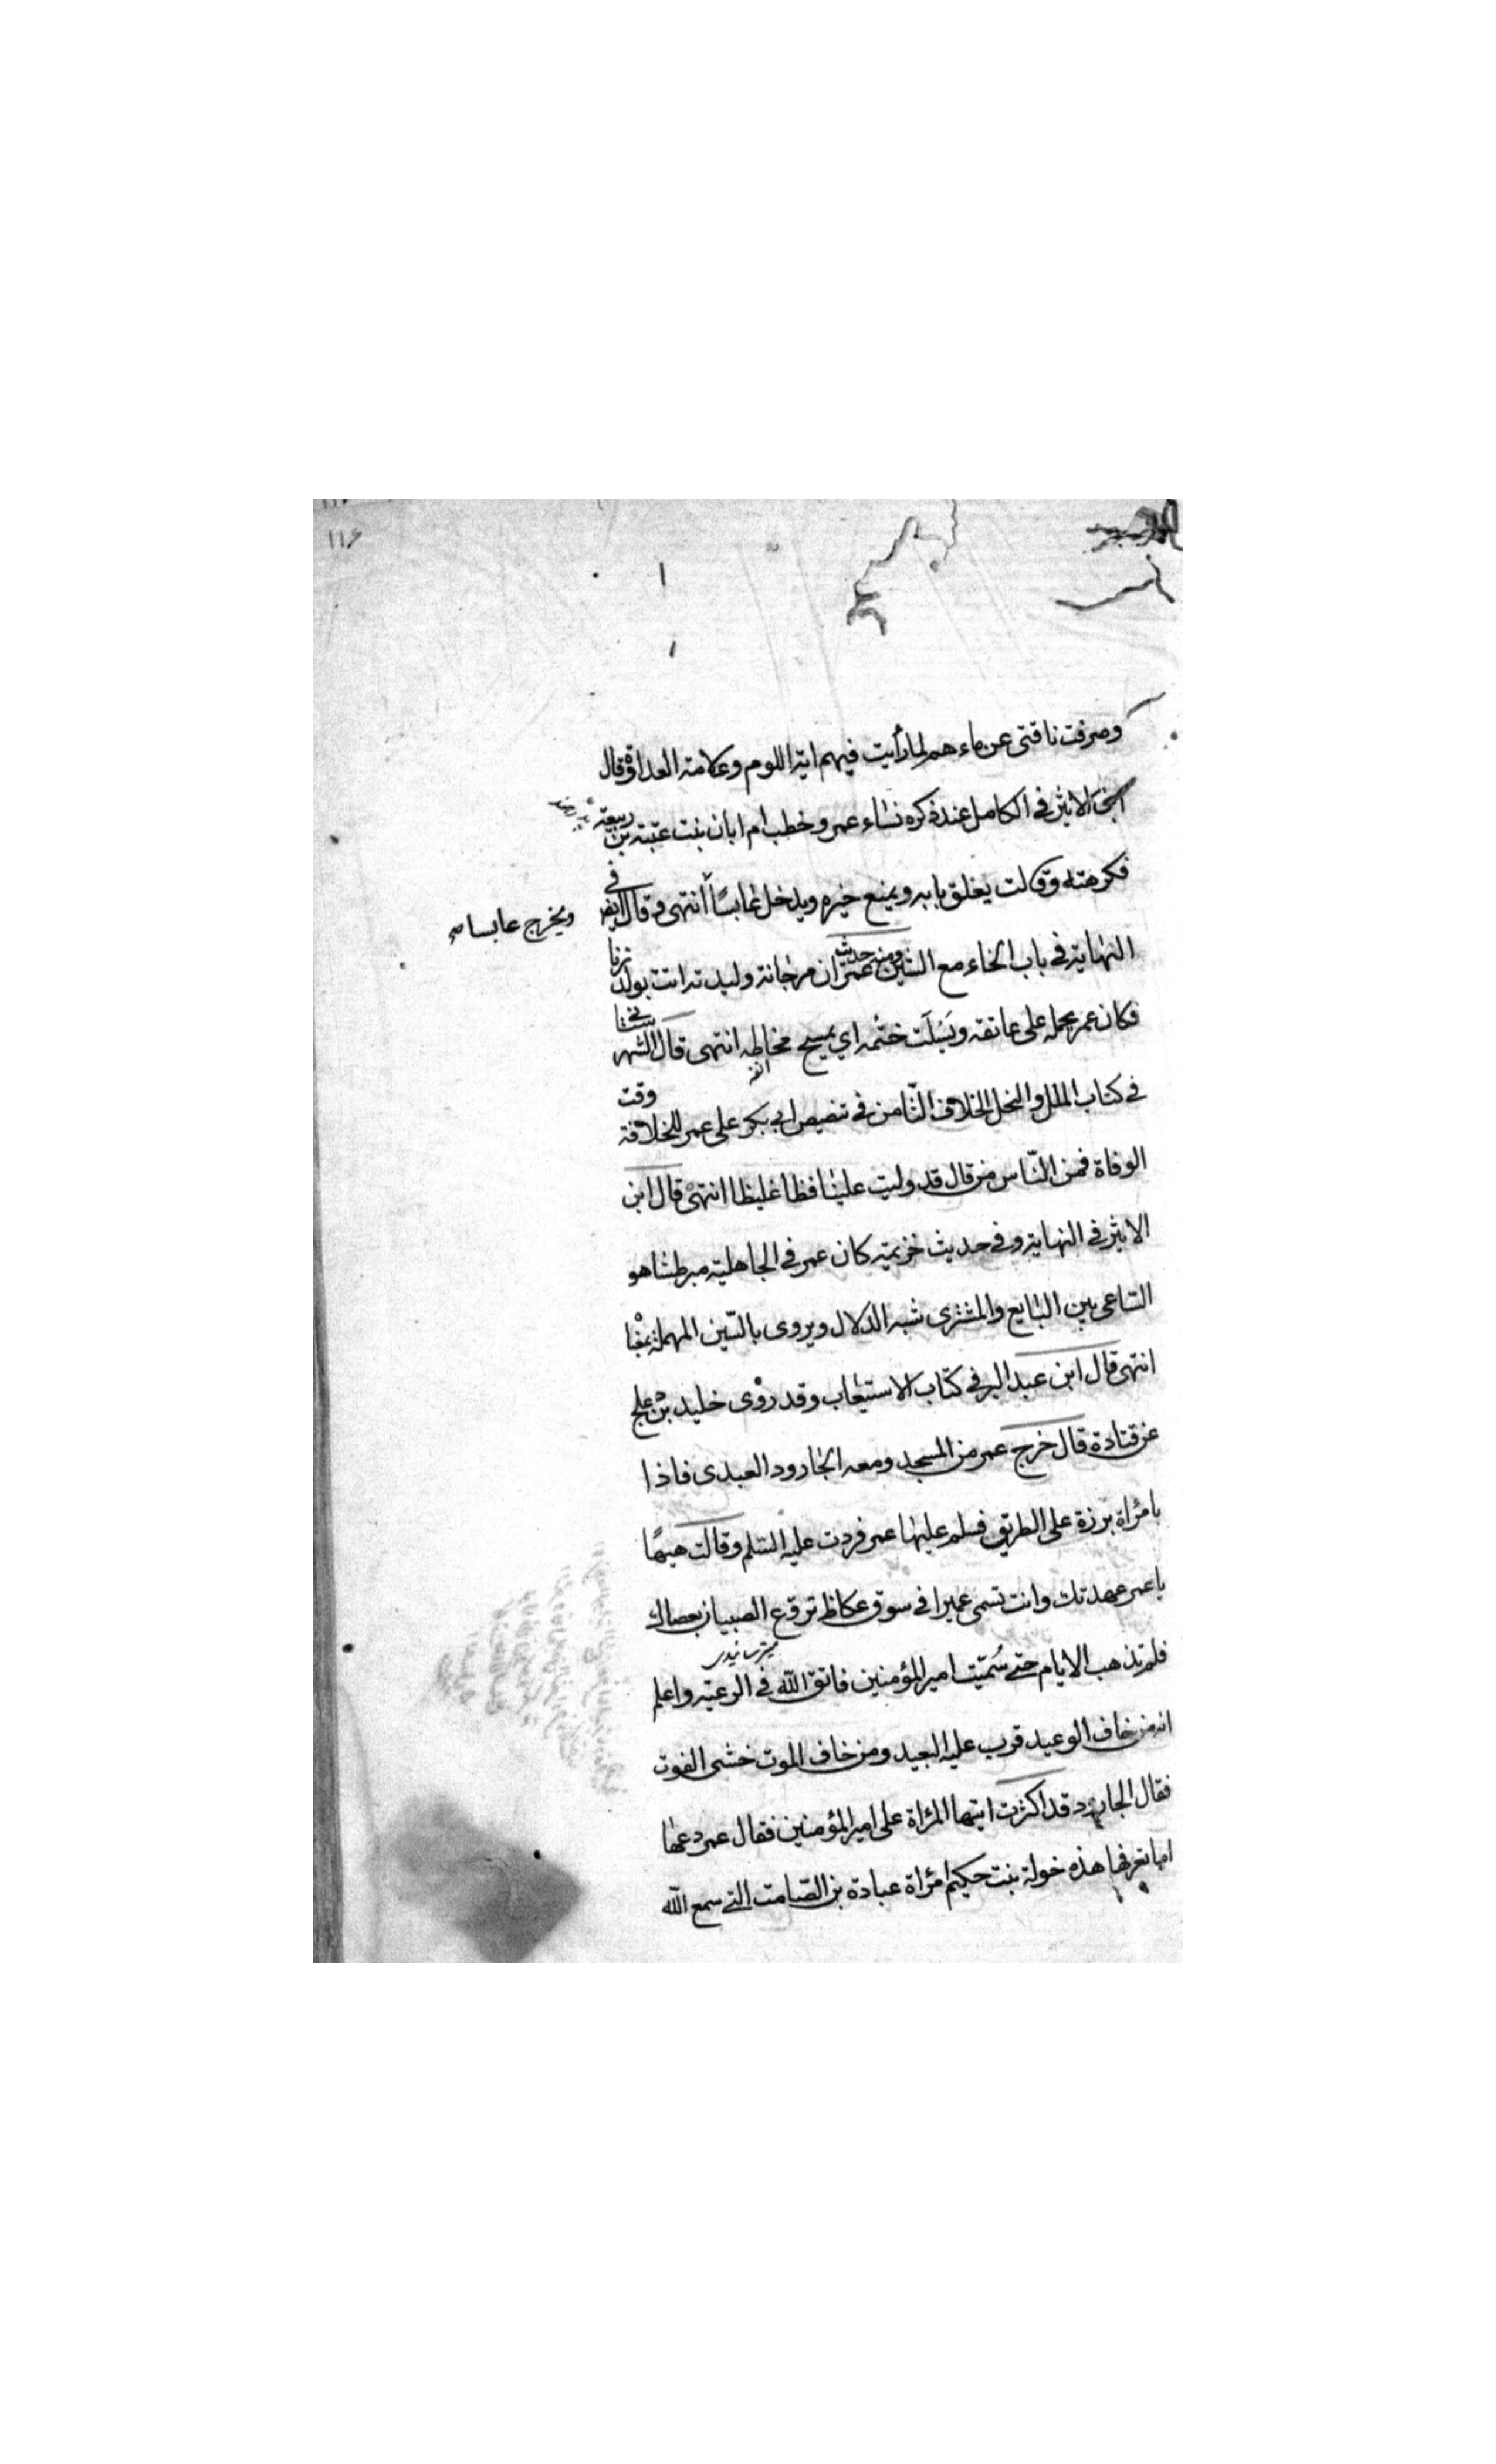 ١١۶
وصرفت ناقتى عن ماءهم لما رأيت فيهم اية اللوم وعلامة العداوة قال
ابن الاثير فى الكامل عند ذكره نساء عمر وخطب ام ابان بنت عتبة بن ربيعة
فكرهته وقالت يغلق بابه ويمنع خيره ويدخل عابسًا انتهى وقال ايضا فى
ويخرج عابسا صح
النهاية فى باب الخاء مع الشين ومنه حديث عمر ان مرجانة وليدته اتت بولد زنا
فكان عمر يحمله على عاتقه ويسلت خشمه اي يمسح مخاطه انتهى قال الشهرستانى
انفه
فى كتاب الملل والنحل الخلاف الثامن فى تنصيص ابى بكر على عمر للخلافة وقت
الوفاة فمن النّاس من قال قد وليت علينا فظا غليظا انتهى قال ابن
الاثير فى النهاية وفى حديث خزيمة كان عمر فى الجاهلية مبرطشا هو
الساعى بين البايع والمشترى شبه الدلال ويروى بالسّين المهملة بمعناه
انتهى قال ابن عبد البر فى كتاب الاستيعاب وقد روى خليد بن دعلج
عن قتادة قال خرج عمر من المسجد ومعه الجارود العبدى فاذا
بامرأة برزة على الطريق فسلم عليها عمر فردت عليه السّلم وقالت هيهًا
يا عمر عهدتك وانت تسمى عميرا فى سوق عكاظ تروّع الصبيان بعصاك
فلم تذهب الايام حتى سُمّيت امير المؤمنين فاتق اللّه فى الرعيّة واعلم
انه من خاف الوعيد قرب عليه البعيد ومن خاف الموت خشى الفوت
فقال الجارود قد اكثرت ايتها المرأة على امير المؤمنين فقال عمر دعها
اما تعرفها هذه خولة بنت حكيم امرأة عبادة بن الصّامت التى سمع اللّه